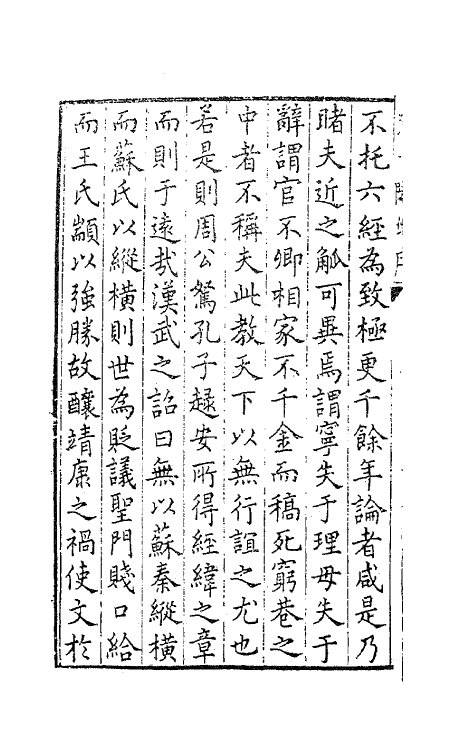 不托六經為致極更千餘年論者咸是乃
睹夫近之觚可異焉謂寧失于理毋失于
辭謂官不卿相家不千金而稿死窮巷之
中者不稱夫此教天下以無行誼之尤也
若是則周公駑孔子趢安所得經緯之章
而則于遠哉漢武之詔曰無以蘇秦縱橫
而蘇氏以縱橫則世為貶議聖門賤口給
而王氏顓以強勝故釀靖康之禍使文於